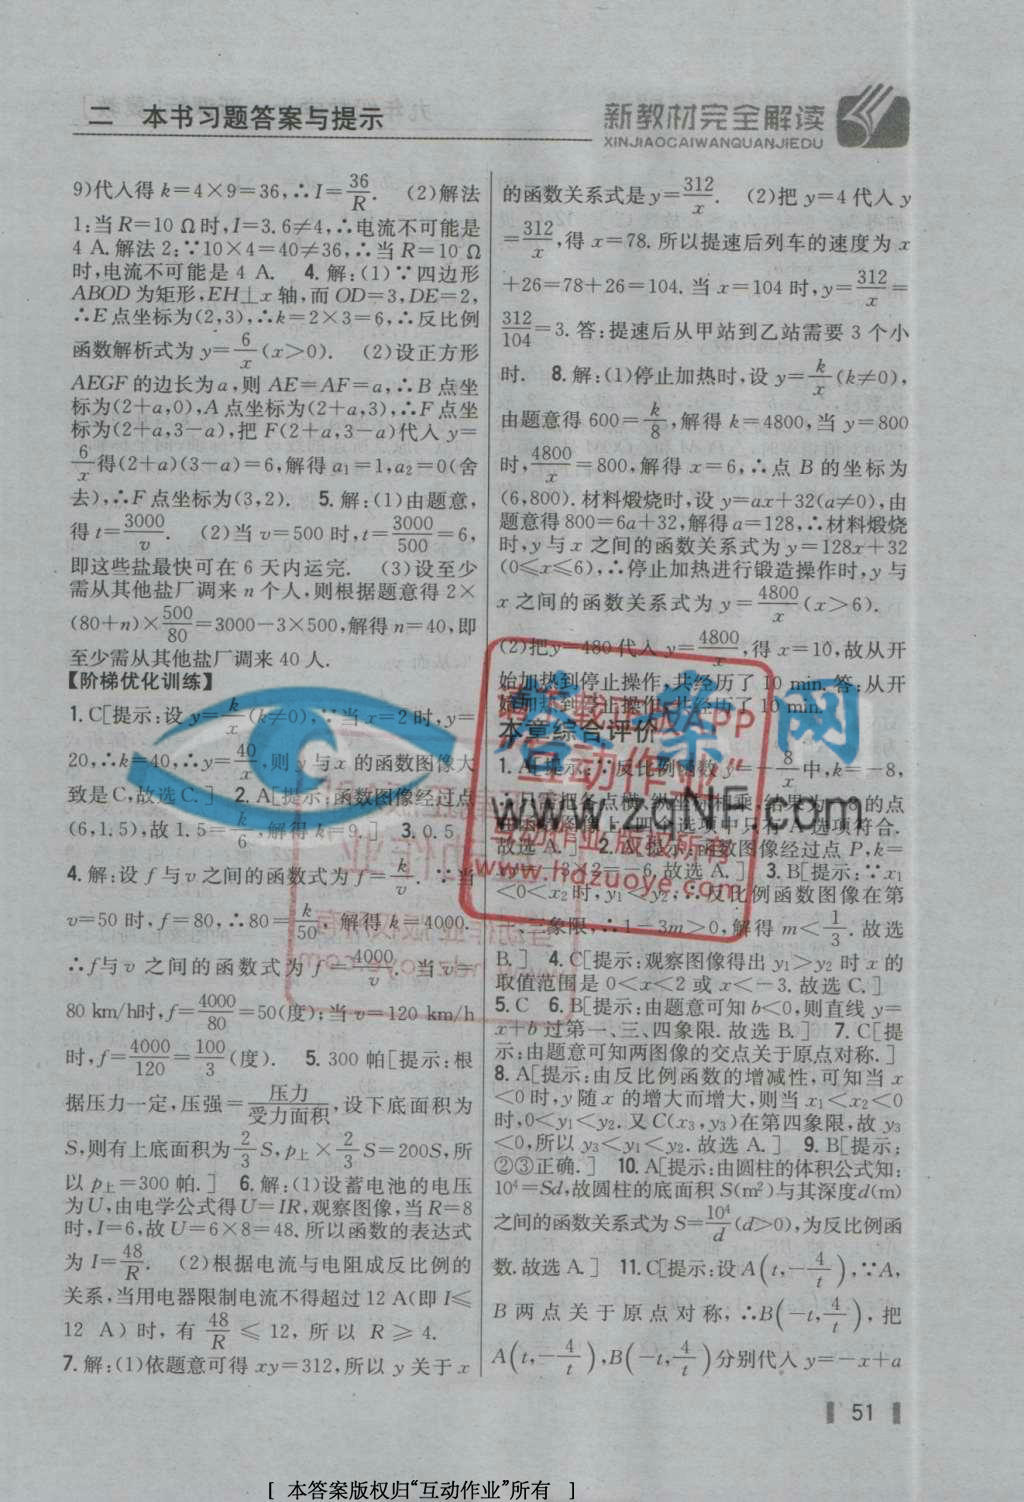 二 本书习题答案与提示
新教材完全解读
XINJIAOCAIWANQUANJIEDU
9)代入得 k=4×9=36,∴I=36/R. (2)解法
1:当 R=10 Ω 时,I=3.6≠4,∴电流不可能是
4 A.解法 2:∵10×4=40≠36,∴当 R=10 Ω
时,电流不可能是 4 A. 4.解:(1)∵四边形
ABOD 为矩形,EH⊥x 轴,而 OD=3,DE=2,
∴E 点坐标为(2,3),∴k=2×3=6,∴反比例
函数解析式为 y=6/x(x>0). (2)设正方形
AEGF 的边长为 a,则 AE=AF=a,∴B 点坐
标为(2+a,0),A 点坐标为(2+a,3),∴F 点坐
标为(2+a,3-a),把 F(2+a,3-a)代入 y=
6/x得(2+a)(3-a)=6,解得 a₁=1,a₂=0(舍
去),∴F 点坐标为(3,2). 5.解:(1)由题意,
得 t=3000/v. (2)当 v=500 时,t=3000/500=6,
即这些盐最快可在 6 天内运完. (3)设至少
需从其他盐厂调来 n 个人,则根据题意得 2×
(80+n)×500/80=3000-3×500,解得 n=40,即
至少需从其他盐厂调来 40 人.
【阶梯优化训练】
1.C[提示:设 y=k/x(k≠0),∵当 x=2 时,y=
20,∴k=40,∴y=40/x,则 y 与 x 的函数图像大
致是 C,故选 C.] 2.A[提示:函数图像经过点
(6,1.5),故 1.5=k/6,解得 k=9.] 3.0.5
4.解:设 f 与 v 之间的函数式为 f=k/v.∵当
v=50 时,f=80,∴80=k/50,解得 k=4000.
∴f 与 v 之间的函数式为 f=4000/v.当 v=
80 km/h时,f=4000/80=50(度);当 v=120 km/h
时,f=4000/120=100/3(度). 5.300 帕[提示:根
据压力一定,压强=压力/受力面积,设下底面积为
S,则有上底面积为2/3S,p上×2/3S=200S,所
以 p上=300 帕.] 6.解:(1)设蓄电池的电压
为 U,由电学公式得 U=IR,观察图像,当 R=8
时,I=6,故 U=6×8=48.所以函数的表达式
为 I=48/R. (2)根据电流与电阻成反比例的
关系,当用电器限制电流不得超过 12 A(即 I≤
12 A)时,有48/R≤12,所以 R≥4.
7.解:(1)依题意可得 xy=312,所以 y 关于 x
的函数关系式是 y=312/x. (2)把 y=4 代入 y
=312/x,得 x=78.所以提速后列车的速度为 x
+26=78+26=104.当 x=104 时,y=312/x=
312/104=3.答:提速后从甲站到乙站需要 3 个小
时. 8.解:(1)停止加热时,设 y=k/x(k≠0),
由题意得 600=k/8,解得 k=4800,当 y=800
时,4800/x=800,解得 x=6,∴点 B 的坐标为
(6,800).材料煅烧时,设 y=ax+32(a≠0),由
题意得 800=6a+32,解得 a=128,∴材料煅烧
时,y 与 x 之间的函数关系式为 y=128x+32
(0≤x≤6),∴停止加热进行锻造操作时,y 与
x 之间的函数关系式为 y=4800/x(x>6).
(2)把 y=480 代入 y=4800/x,得 x=10,故从开
始加热到停止操作,共经历了 10 min.答:从开
始加热到停止操作,共经历了 10 min.
本章综合评价
1.A[提示:∵反比例函数 y=-8/x中,k=-8,
∴只需把各点横、纵坐标相乘,结果为的点
在函数图像上,四个选项中只有 A 选项符合.
故选 A.] 2.A[提示:函数图像经过点 P,k=
-3×2=-6,故选 A.] 3.B[提示:∵x₁
<0<x₂时,y₁<y₂,∴反比例函数图像在第
一、三象限,∴1-3m>0,解得 m<1/3.故选
B.] 4.C[提示:观察图像得出 y₁>y₂ 时 x 的
取值范围是 0<x<2 或 x<-3.故选 C.]
5.C 6.B[提示:由题意可知 b<0,则直线 y=
x+b 过第一、三、四象限.故选 B.] 7.C[提
示:由题意可知两图像的交点关于原点对称.]
8.A[提示:由反比例函数的增减性,可知当 x
<0 时,y 随 x 的增大而增大,则当 x₁<x₂<0
时,0<y₁<y₂.又 C(x₃,y₃)在第四象限,故 y₃
<0,所以 y₃<y₁<y₂.故选 A.] 9.B[提示:
②③正确.] 10.A[提示:由圆柱的体积公式知:
10⁴=Sd,故圆柱的底面积 S(m²)与其深度d(m)
之间的函数关系式为 S=10⁴/d(d>0),为反比例函
数.故选 A.] 11.C[提示:设 A(t,-4/t),∵A,
B 两点关于原点对称,∴B(-t,4/t),把
A(t,-4/t),B(-t,4/t)分别代入 y=-x+a
答案网
www.zqNF.com
互动作业"
互动作业 版权所有
www.hdzuoye.com
51
[ 本答案版权归“互动作业”所有 ]